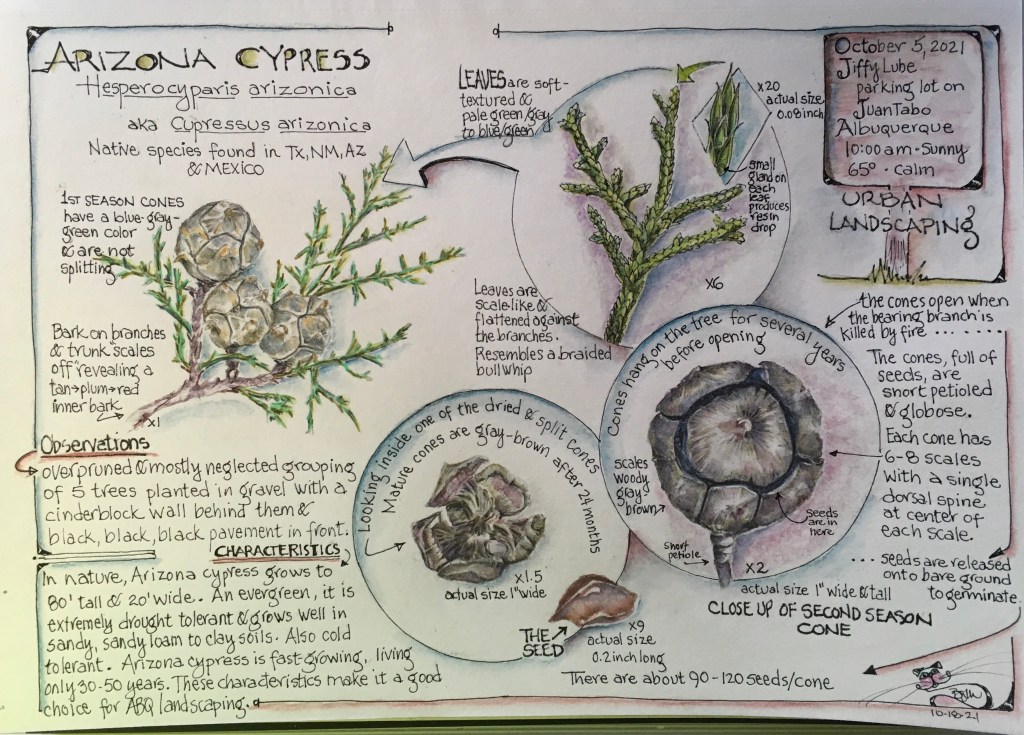 ARIZONA CYPRESS
Hesperocyparis arizonica
aka Cupressus arizonica
Native species found in Tx, NM, AZ
& MEXICO
1ST SEASON CONES
have a blue-gray-
green color
& are not
splitting
Bark on branches
& trunk scales
off revealing a
tan→plum→red
inner bark
x1
LEAVES are soft-
textured &
pale green/gray
to blue/green
x20
actual size
0.08 inch
small
gland on
each
leaf
produces
resin
drop
x6
Leaves are
scale-like &
flattened against
the branches.
Resembles a braided
bull whip
October 5, 2021
Jiffy Lube
parking lot on
Juan Tabo
Albuquerque
10:00 am · Sunny
65° · calm
URBAN
LANDSCAPING
the cones open when
the bearing branch is
killed by fire ........
The cones, full of
seeds, are
short petioled
& globose.
Each cone has
6-8 scales
with a single
dorsal spine
at center of
each scale.
... seeds are released
onto bare ground
to germinate.
Cones hang on the tree for several years
before opening
scales
woody
gray
brown
seeds
are in
here
short
petiole
x2
actual size 1" wide & tall
CLOSE UP OF SECOND SEASON
CONE
Looking inside one of the dried & split cones
Mature cones are gray-brown after 24 months
x1.5
actual size 1" wide
THE
SEED
x9
actual size
0.2 inch long
There are about 90-120 seeds/cone
Observations
overpruned & mostly neglected grouping
of 5 trees planted in gravel with a
cinderblock wall behind them &
black, black, black pavement in front.
CHARACTERISTICS
In nature, Arizona cypress grows to
80' tall & 20' wide. An evergreen, it is
extremely drought tolerant & grows well in
sandy, sandy loam to clay soils. Also cold
tolerant. Arizona cypress is fast-growing, living
only 30-50 years. These characteristics make it a good
choice for ABQ landscaping.
10-18-21